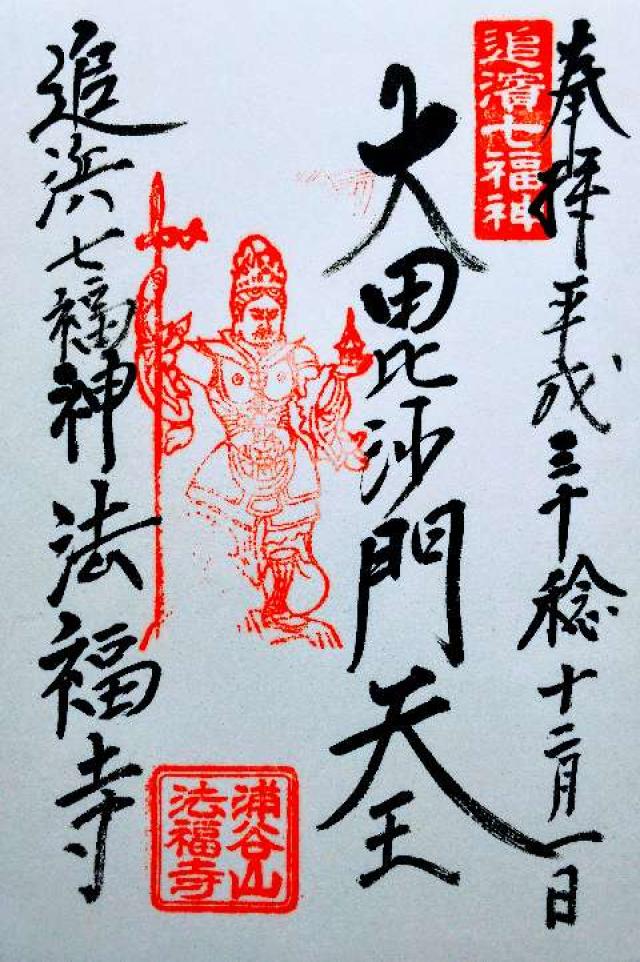 奉拝 平成三十稔十二月一日
追濱七福神
大毘沙門天王
追浜七福神 法福寺
浦谷山
法福寺